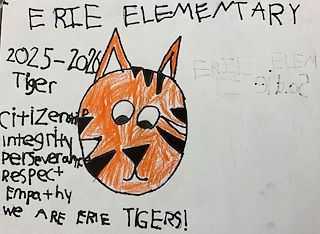 ERIE ELEMENTARY
2025-2026
Tiger
ERIE ELEM
Citizenship
integrity
perseverance
Respect
Empathy
We ARE ERIE TIGERS!